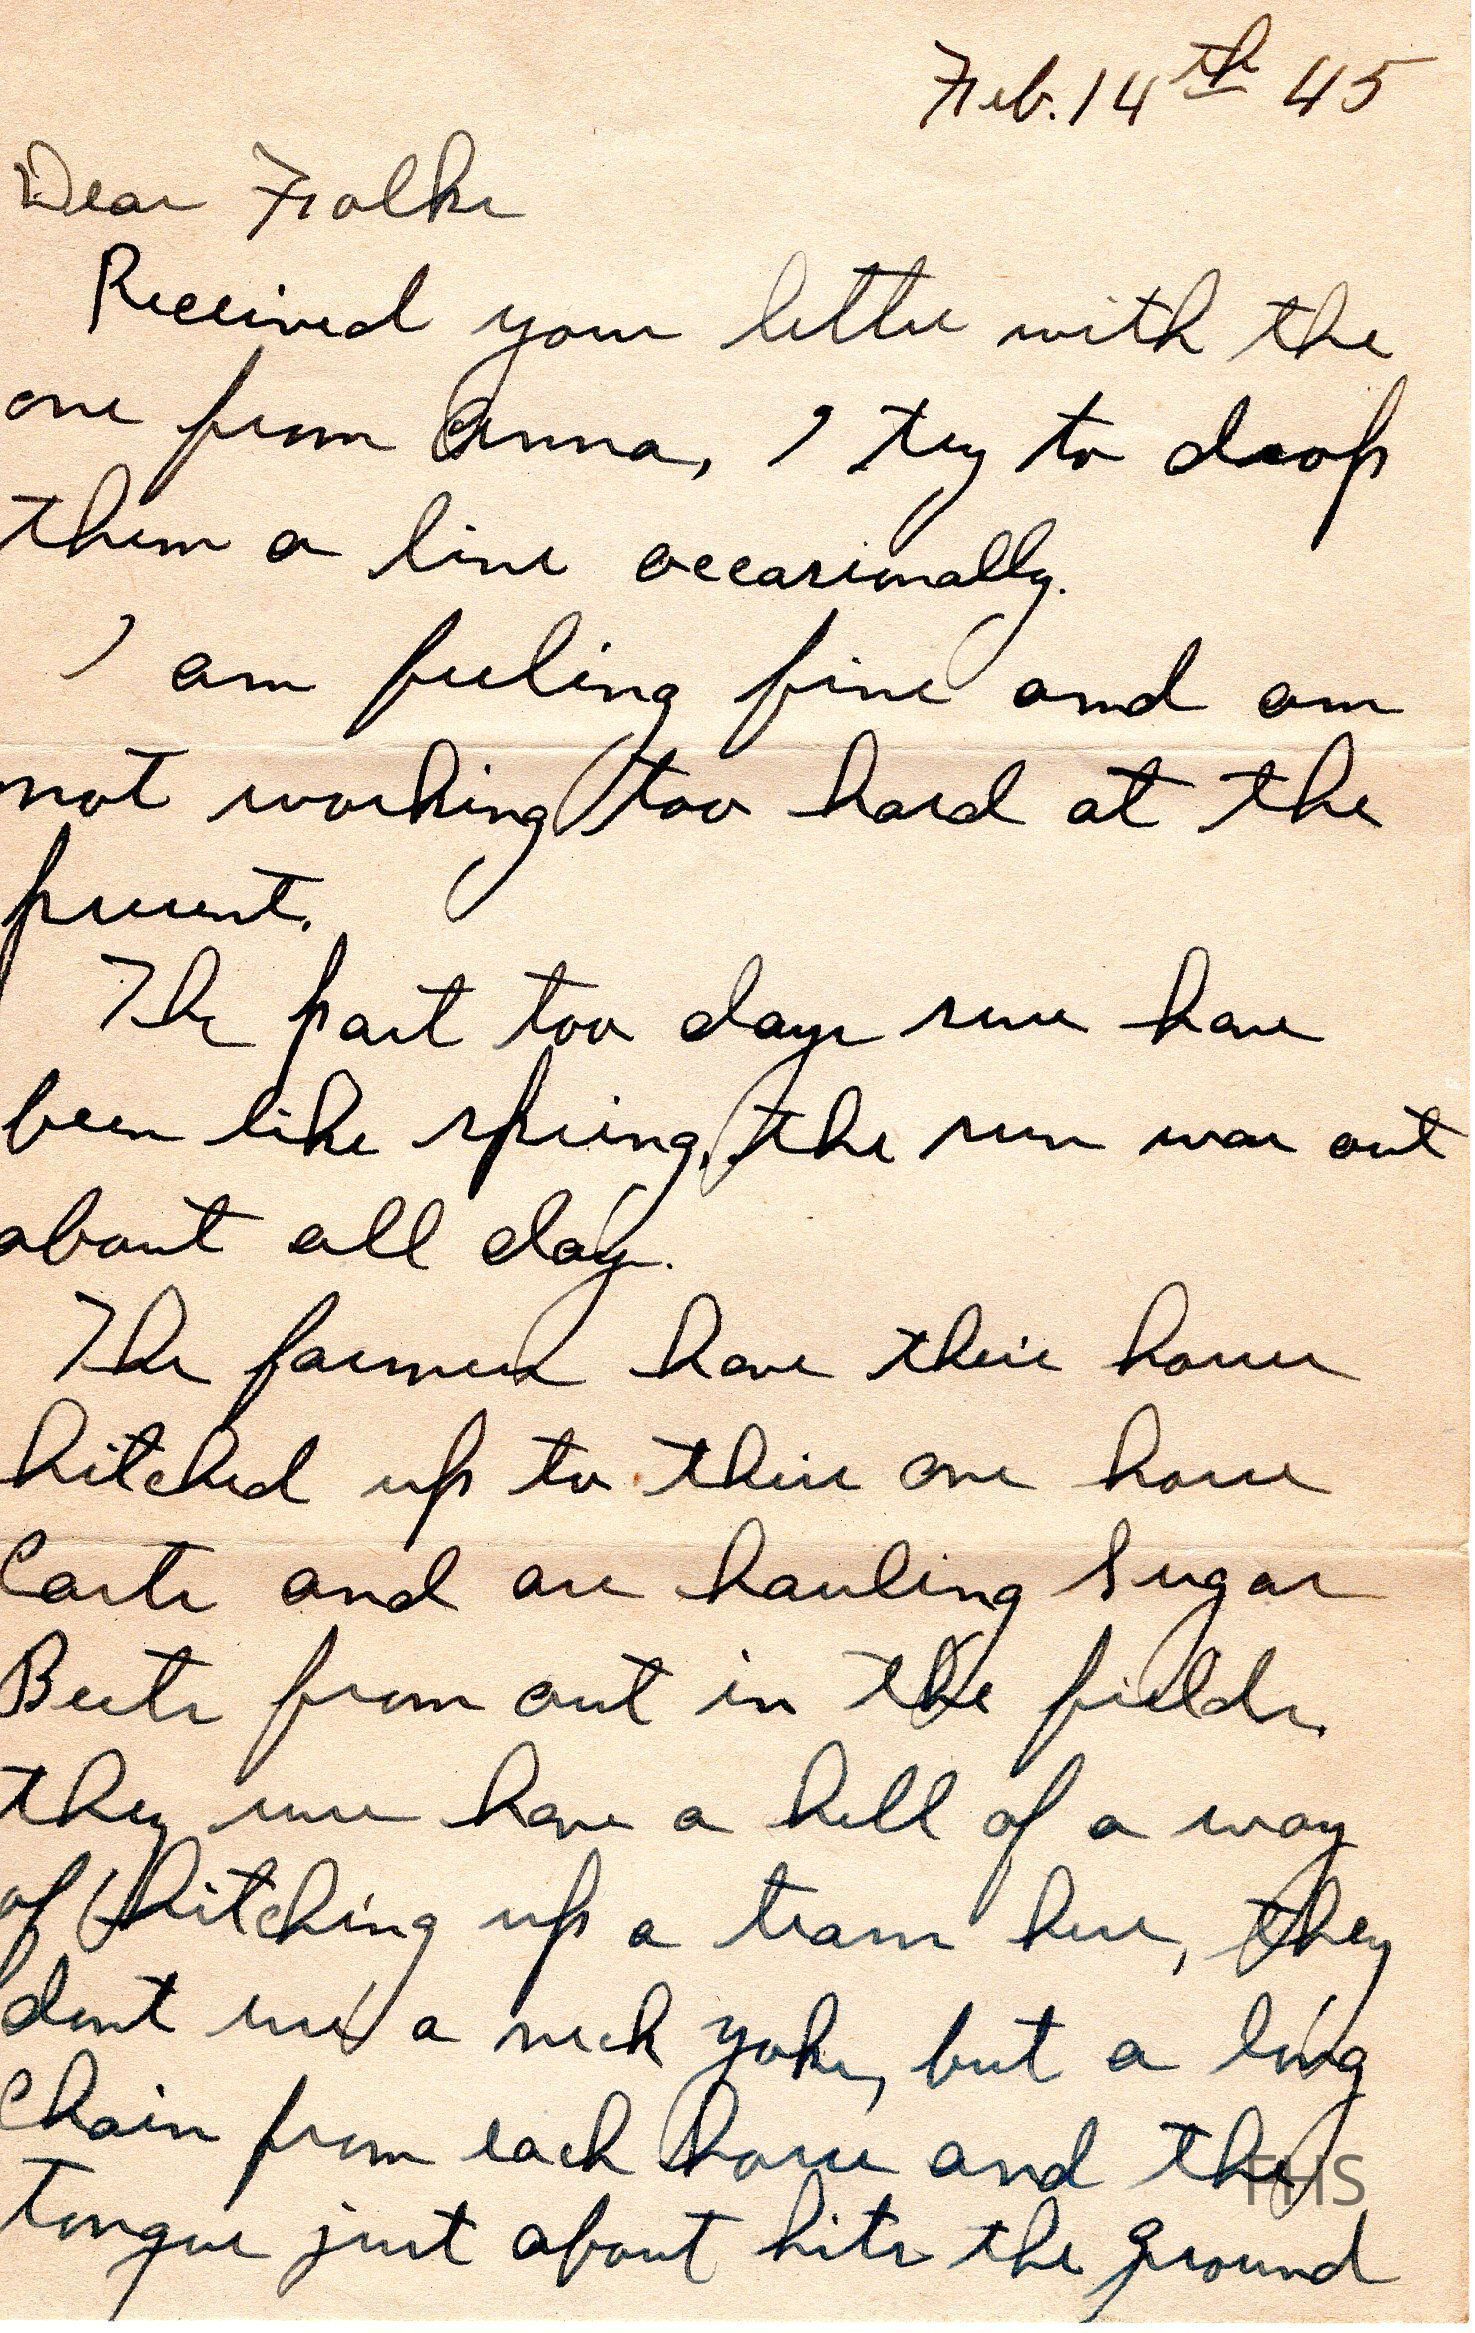 Feb. 14th 45
Dear Folks
Received your letter with the
one from Anna, I try to drop
them a line occasionally.
I am feeling fine and am
not working too hard at the
present.
The past too days sure have
been like spring, the sun was out
about all day.
The farmers have their horses
hitched up to their one horse
Carts and are hauling Sugar
Beets from out in the fields.
they sure have a hell of a way
of hitching up a team here, they
dont use a neck yoke, but a long
Chain from each horse and the
tongue just about hits the ground
FHS